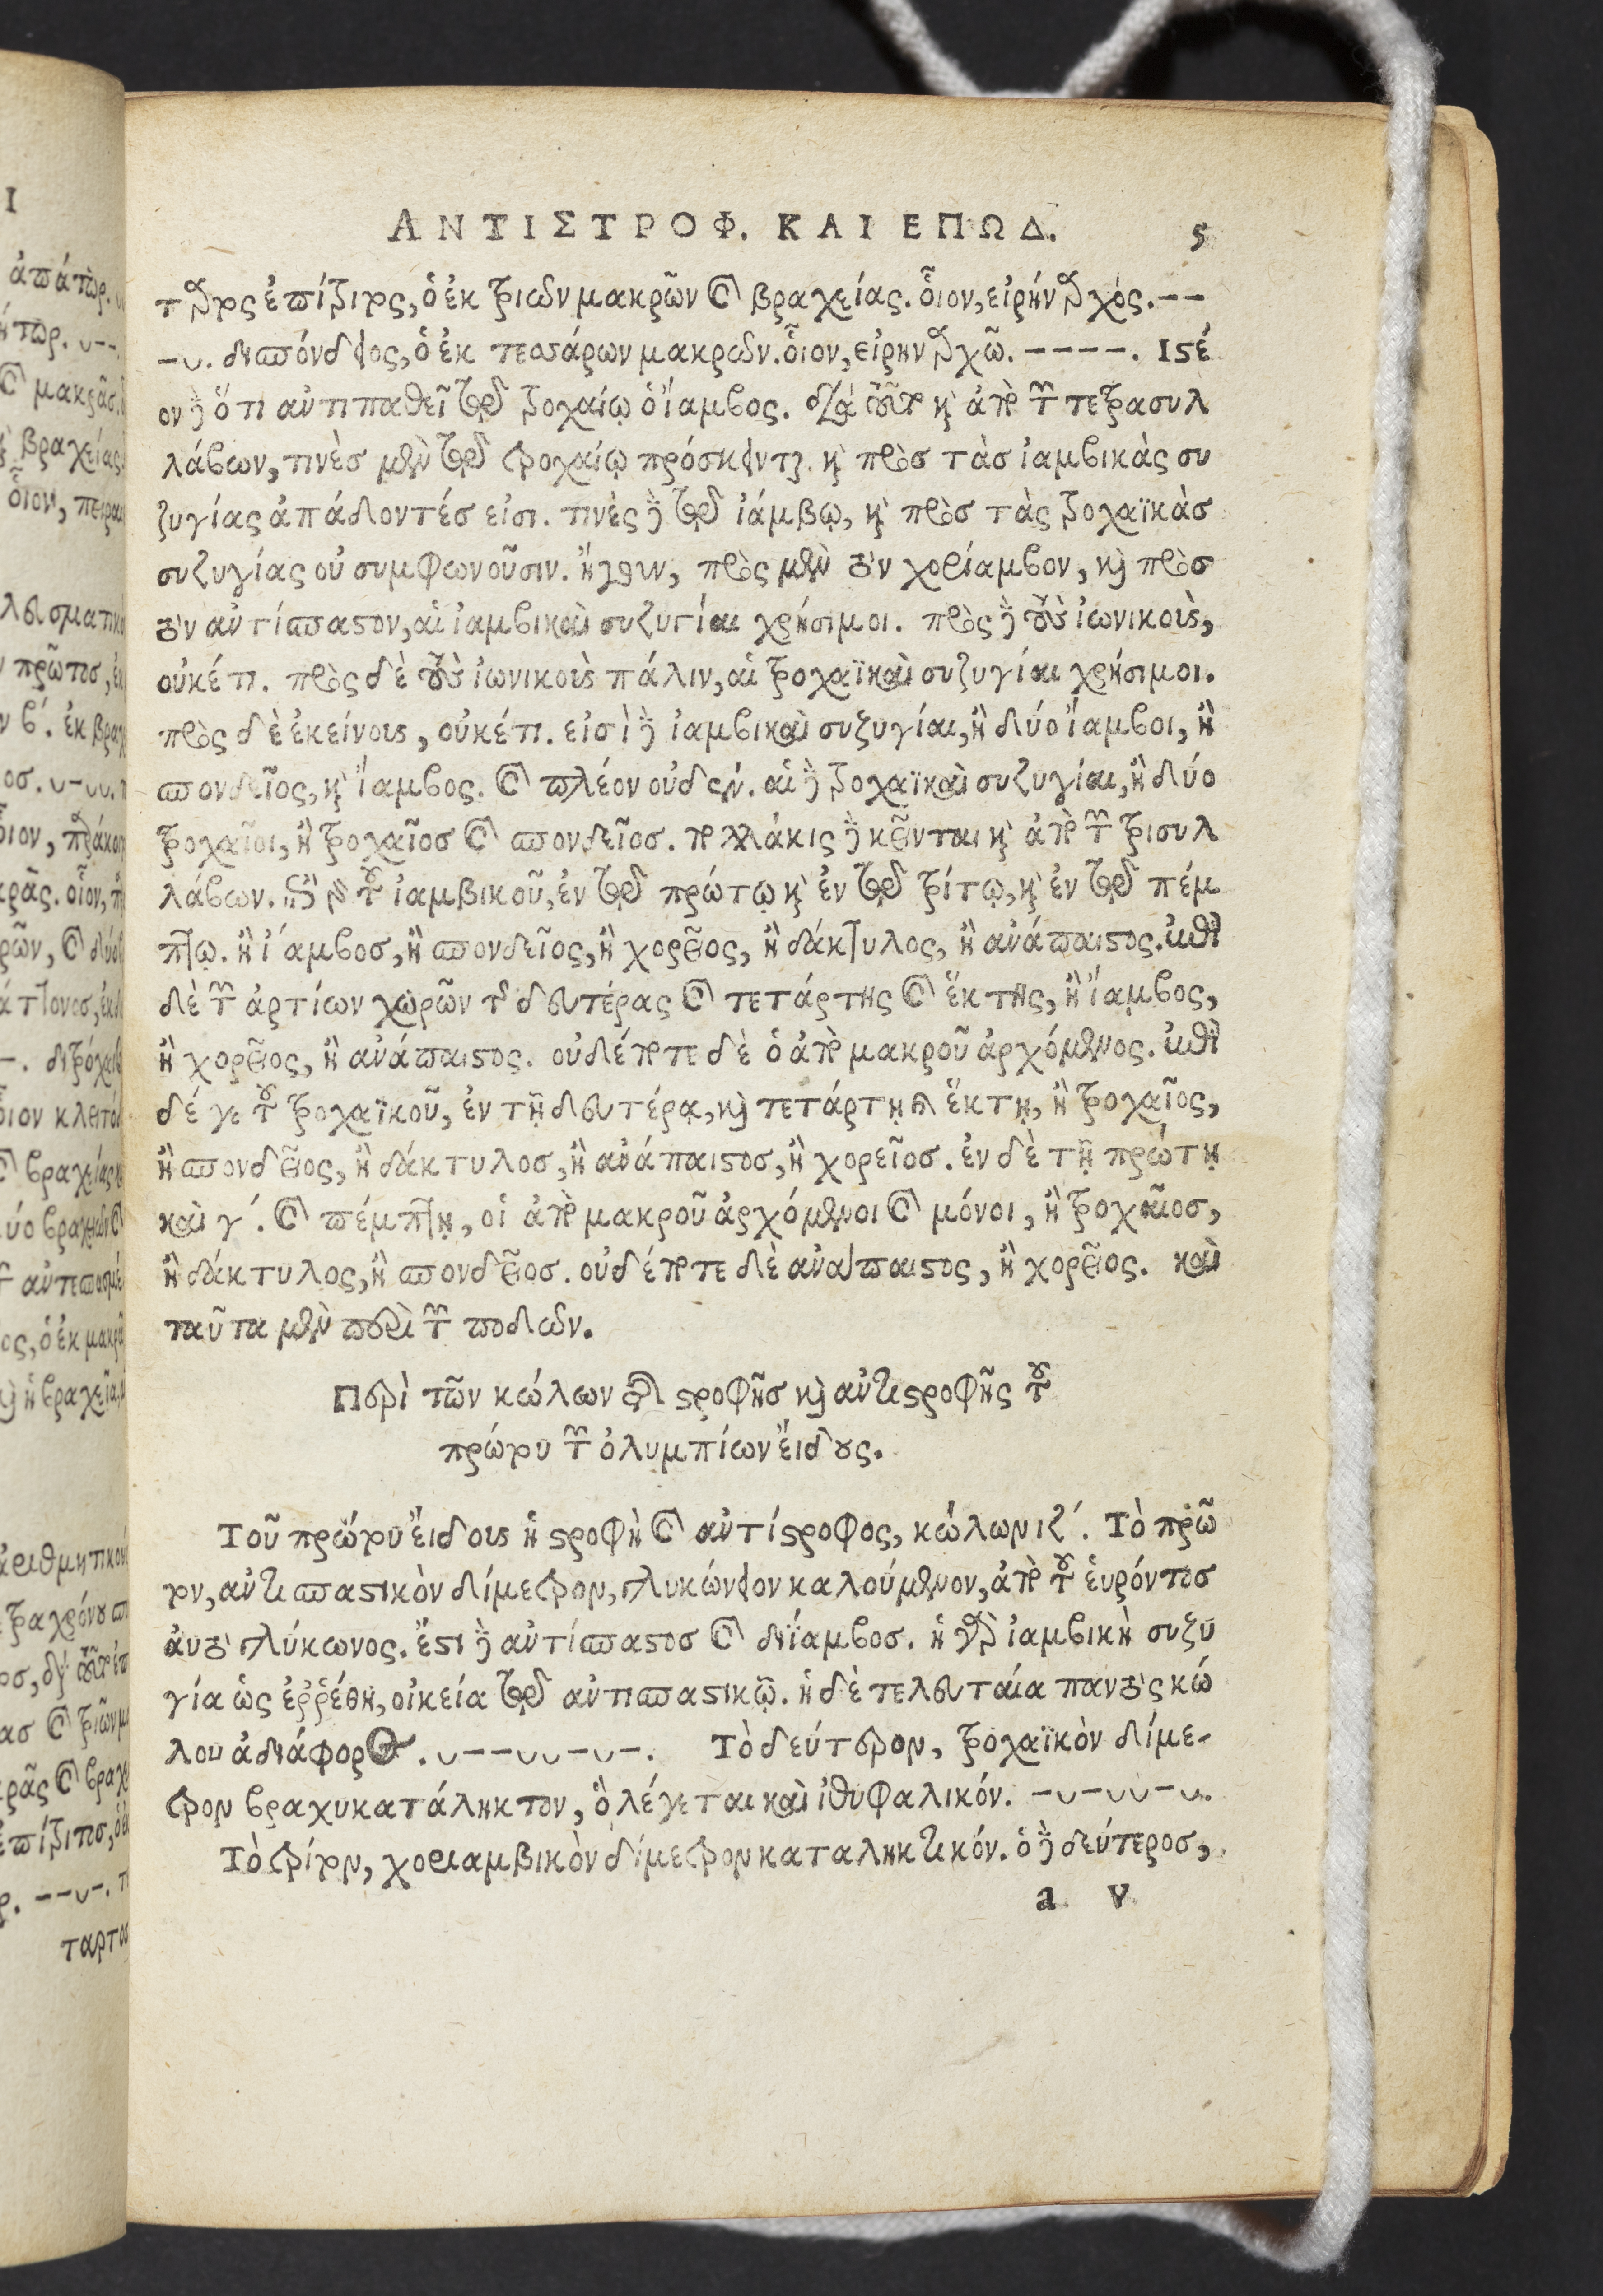 ΑΝΤΙΣΤΡΟΦ. ΚΑΙ ΕΠΩΔ. 5
ταρτος ἐπίτριτος, ὁ ἐκ τριῶν μακρῶν καὶ βραχείας. οἷον, εἰρήναρχός. – –
– ᴗ. δισπόνδειος, ὁ ἐκ τεσσάρων μακρῶν. οἷον, εἰρηνάρχῶ. – – – –. Ιστέ
ον δὲ ὅτι ἀντιπαθεῖ τῷ τροχαίῳ ὁ ἴαμβος. διὰ τοῦτο καὶ ἀπὸ τῶν τετρασυλ
λάβων, τινὲσ μὲν τῷ τροχαίῳ πρόσκεινται. καὶ πρὸσ τὰσ ἰαμβικὰς συ
ζυγίας ἀπάδοντέσ εἰσι. τινὲς δὲ τῷ ἰάμβῳ, καὶ πρὸσ τὰς τροχαϊκὰσ
συζυγίας οὐ συμφωνοῦσιν. ἤγουν, πρὸς μὲν τὸν χορίαμβον, καὶ πρὸσ
τὸν ἀντίσπαστον, αἱ ἰαμβικαὶ συζυγίαι χρήσιμοι. πρὸς δὲ τοὺς ἰωνικοὺς,
οὐκέτι. πρὸς δὲ τοὺς ἰωνικοὺς πάλιν, αἱ τροχαϊκαὶ συζυγίαι χρήσιμοι.
πρὸς δὲ ἐκείνους, οὐκέτι. εἰσὶ δὲ ἰαμβικαὶ συζυγίαι, ἢ δύο ἴαμβοι, ἢ
σπονδεῖος, καὶ ἴαμβος. καὶ πλέον οὐδέν. αἱ δὲ τροχαϊκαὶ συζυγίαι, ἢ δύο
τροχαῖοι, ἢ τροχαῖοσ καὶ σπονδεῖοσ. πολλάκις δὲ κεῖνται καὶ ἀπὸ τῶν τρισυλ
λάβων. ἐπὶ μὲν τοῦ ἰαμβικοῦ, ἐν τῷ πρώτῳ καὶ ἐν τῷ τρίτῳ, καὶ ἐν τῷ πέμ
πτῳ. ἢ ἴαμβοσ, ἢ σπονδεῖος, ἢ χορεῖος, ἢ δάκτυλος, ἢ ἀνάπαιστος. ἐπὶ
δὲ τῶν ἀρτίων χωρῶν τῆς δευτέρας καὶ τετάρτης καὶ ἕκτης, ἢ ἴαμβος,
ἢ χορεῖος, ἢ ἀνάπαιστος. οὐδέποτε δὲ ὁ ἀπὸ μακροῦ ἀρχόμενος. ἐπὶ
δέ γε τοῦ τροχαϊκοῦ, ἐν τῇ δευτέρᾳ, καὶ τετάρτῃ καὶ ἕκτῃ, ἢ τροχαῖος,
ἢ σπονδεῖος, ἢ δάκτυλοσ, ἢ ἀνάπαιστοσ, ἢ χορεῖοσ. ἐν δὲ τῇ πρώτῃ
καὶ γ΄. καὶ πέμπτῃ, οἱ ἀπὸ μακροῦ ἀρχόμενοι καὶ μόνοι, ἢ τροχαῖοσ,
ἢ δάκτυλος, ἢ σπονδεῖοσ. οὐδέποτε δὲ ἀνάπαιστος, ἢ χορεῖος. καὶ
ταῦτα μὲν περὶ τῶν ποδῶν.
Περὶ τῶν κώλων τῆς στροφῆσ καὶ ἀντιστροφῆς τοῦ
πρώτου τῶν ὀλυμπίων εἴδους.
Τοῦ πρώτου εἴδους ἡ στροφὴ καὶ ἀντίστροφος, κώλων ιζ΄. Τὸ πρῶ
τον, ἀντισπαστικὸν δίμετρον, γλυκώνειον καλούμενον, ἀπὸ τοῦ εὑρόντοσ
αὐτὸ γλύκωνος. ἔστι δὲ ἀντίσπαστοσ καὶ διΐαμβοσ. ἡ γὰρ ἰαμβικὴ συζυ
γία ὡς ἐῤῥέθη, οἰκεία τῷ ἀντισπαστικῷ. ἡ δὲ τελευταία παντὸς κώ
λου ἀδιάφορος. ᴗ – – ᴗ ᴗ – ᴗ –. Τὸ δεύτερον, τροχαϊκὸν δίμε-
τρον βραχυκατάληκτον, ὃ λέγεται καὶ ἰθυφαλικόν. – ᴗ – ᴗ ᴗ – ᴗ.
Τὸ τρίτον, χοριαμβικὸν δίμετρον καταληκτικόν. ὁ δὲ δεύτεροσ,
a v